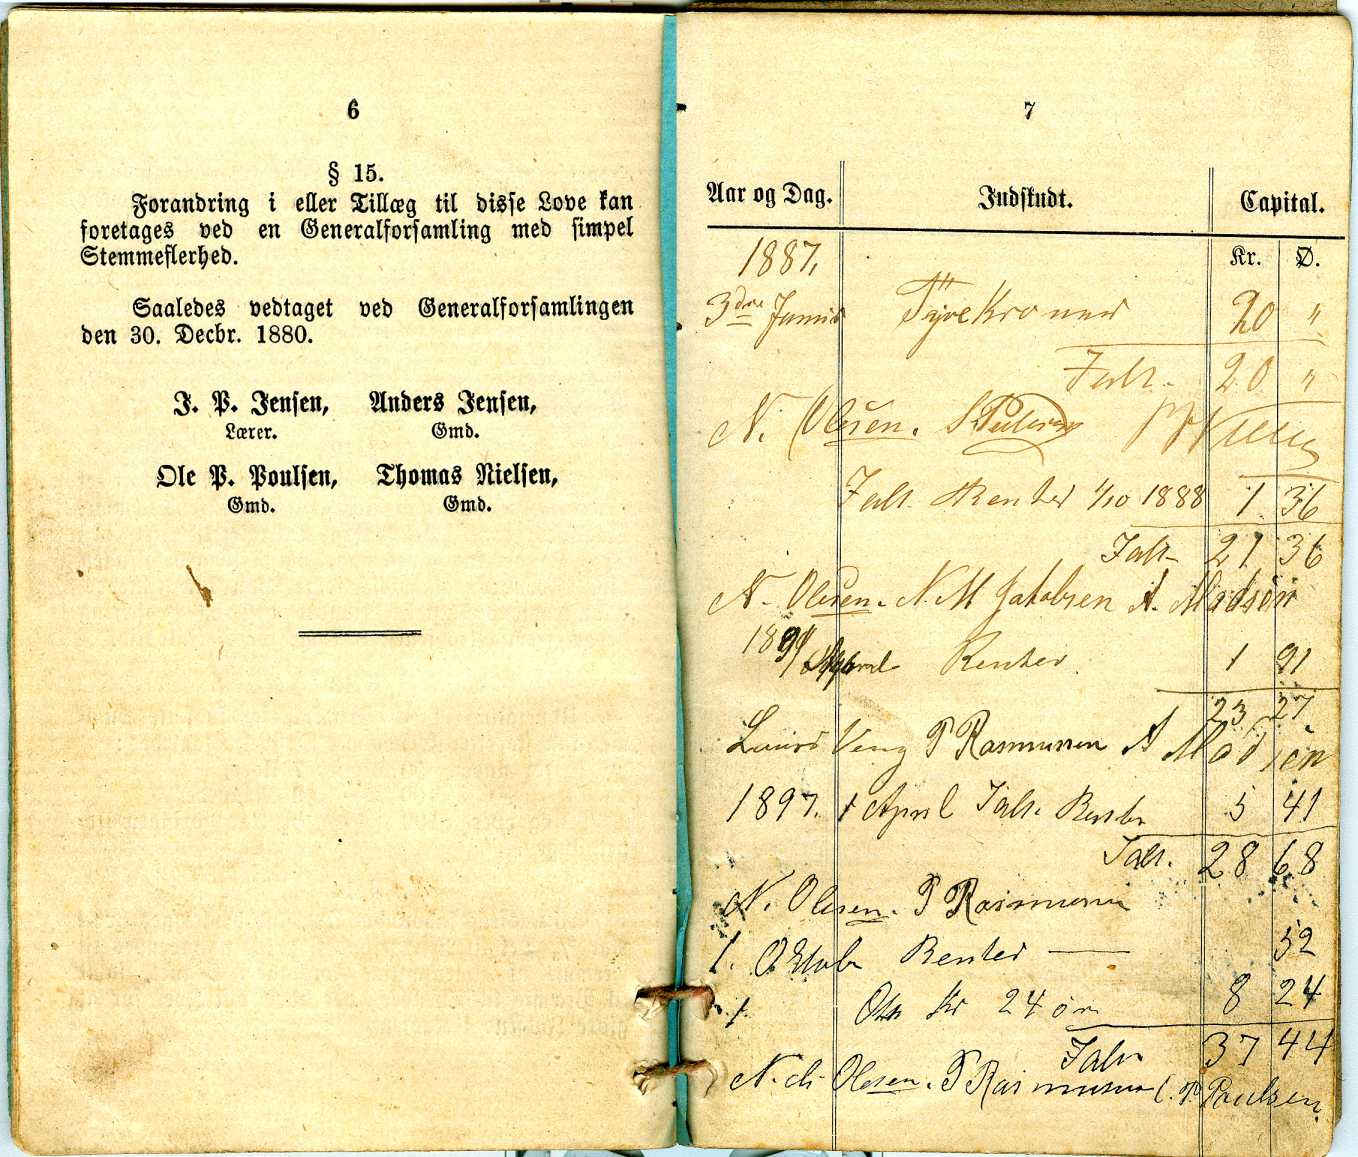 6
§ 15.
Forandring i eller Tillæg til disse Love kan
foretages ved en Generalforsamling med simpel
Stemmeflerhed.
Saaledes vedtaget ved Generalforsamlingen
den 30. Decbr. 1880.
J. P. Jensen, Anders Jensen,
Lærer. Gmd.
Ole P. Poulsen, Thomas Nielsen,
Gmd. Gmd.
7
Aar og Dag. Indskudt. Capital.
Kr. Ø.
1887.
3die Junii Tÿve Kroner 20 "
Ialt. 20 "
N. Olesen. S Pedersen
Ialt. Renter 1/10 1888 1 36
Ialt 21 36
N. Olesen. N. M Jakobsen A. Madsen
1891 April Renter 1 91
23 27
Laurs Veng P Rasmussen A Madsen
1897. 1 April Ialt. Renter 5 41
Ialt. 28 68
N. Olesen. P Rasmussen
1. Oktob Renter — 52
1 Otte Kr 24 øre 8 24
Ialt 37 44
N. Chr Olesen. P Rasmussen C. P. Poulsen.